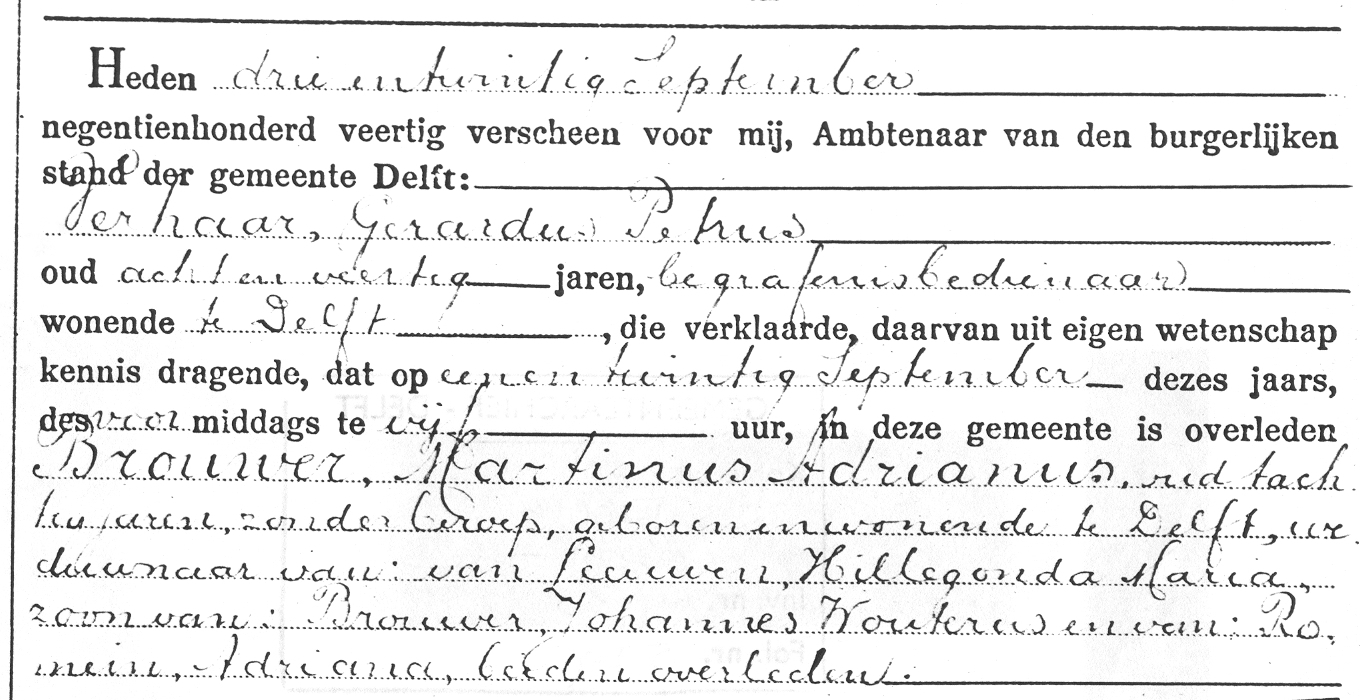 Heden drie en twintig September
negentienhonderd veertig verscheen voor mij, Ambtenaar van den burgerlijken
stand der gemeente Delft:
Verhaar, Gerardus Petrus
oud acht en veertig jaren, begrafenisbedienaar
wonende te Delft, die verklaarde, daarvan uit eigen wetenschap
kennis dragende, dat op een en twintig September dezes jaars,
des voor middags te vijf uur, in deze gemeente is overleden
Brouwer, Martinus Adrianus, oud tach
tig jaren, zonder beroep, geboren en wonende te Delft, we
duwnaar van: van Leeuwen, Hillegonda Maria,
zoon van: Brouwer, Johannes Wouterus en van: Ro,
mein, Adriana, beiden overleden.